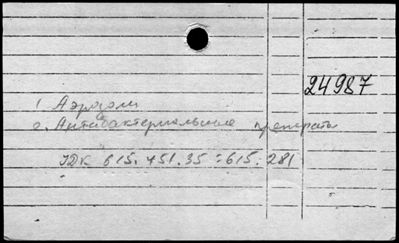 24987
1. Аэрозоли
2. Антибактериальные препараты
УДК 615.451.35:615.281